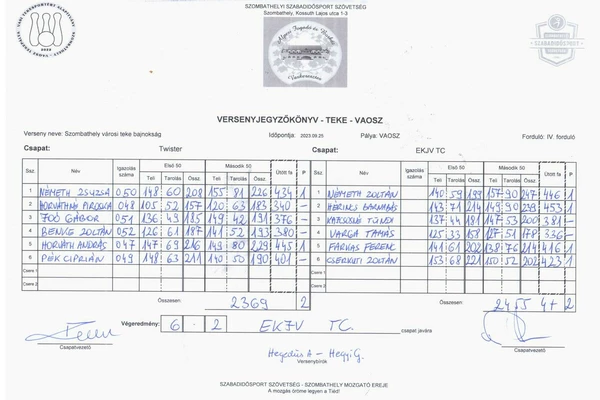 SZOMBATHELYI SZABADIDŐSPORT SZÖVETSÉG
Szombathely, Kossuth Lajos utca 1-3
SZABADIDŐSPORT
VERSENYJEGYZŐKÖNYV - TEKE - VAOSZ
Verseny neve: Szombathely városi teke bajnokság Időpontja: 2023.09.25 Pálya: VAOSZ Forduló: IV. forduló
Csapat: Twister Csapat: EKJV TC
Ssz. Név Igazolás száma Első 50 Második 50 Ütött fa P Ssz. Név Igazolás száma Első 50 Második 50 Ütött fa P
Teli Tarolás Össz. Teli Tarolás Össz. Teli Tarolás Össz. Teli Tarolás Össz.
1 NÉMETH ZSUZSA 050 148 60 208 155 81 226 434 1 1 NÉMETH ZOLTÁN 140 59 199 157 90 247 446 1
2 HORVÁTHNÉ PIROSKA 048 105 52 157 120 63 183 340 - 2 BARNABÁS 143 71 214 149 90 239 453 1
3 ZOÓ GÁBOR 051 136 49 185 149 42 191 376 - 3 TÜNDI 137 44 181 147 53 200 381 -
4 BENKE ZOLTÁN 052 126 61 187 141 52 193 380 - 4 VARGA TAMÁS 125 33 158 127 51 178 336 -
5 HORVÁTH ANDRÁS 047 147 69 216 149 80 229 445 1 5 FARKAS FERENC 141 61 202 138 76 214 416 1
6 PÉK CIPRIÁN 049 148 63 211 140 50 190 401 - 6 CSERKUTI ZOLTÁN 153 68 221 150 52 202 423 1
Csere 1 Csere 1
Csere 2 Csere 2
Összesen: 2369 2 Összesen: 2455 4+2
Végeredmény: 6 - 2 EKJV TC. csapat javára
Csapatvezető Csapatvezető
Hegedüs A - Hegyi G.
Versenybírók
SZABADIDŐSPORT SZÖVETSÉG - SZOMBATHELY MOZGATÓ EREJE
A mozgás öröme legyen a Tiéd!